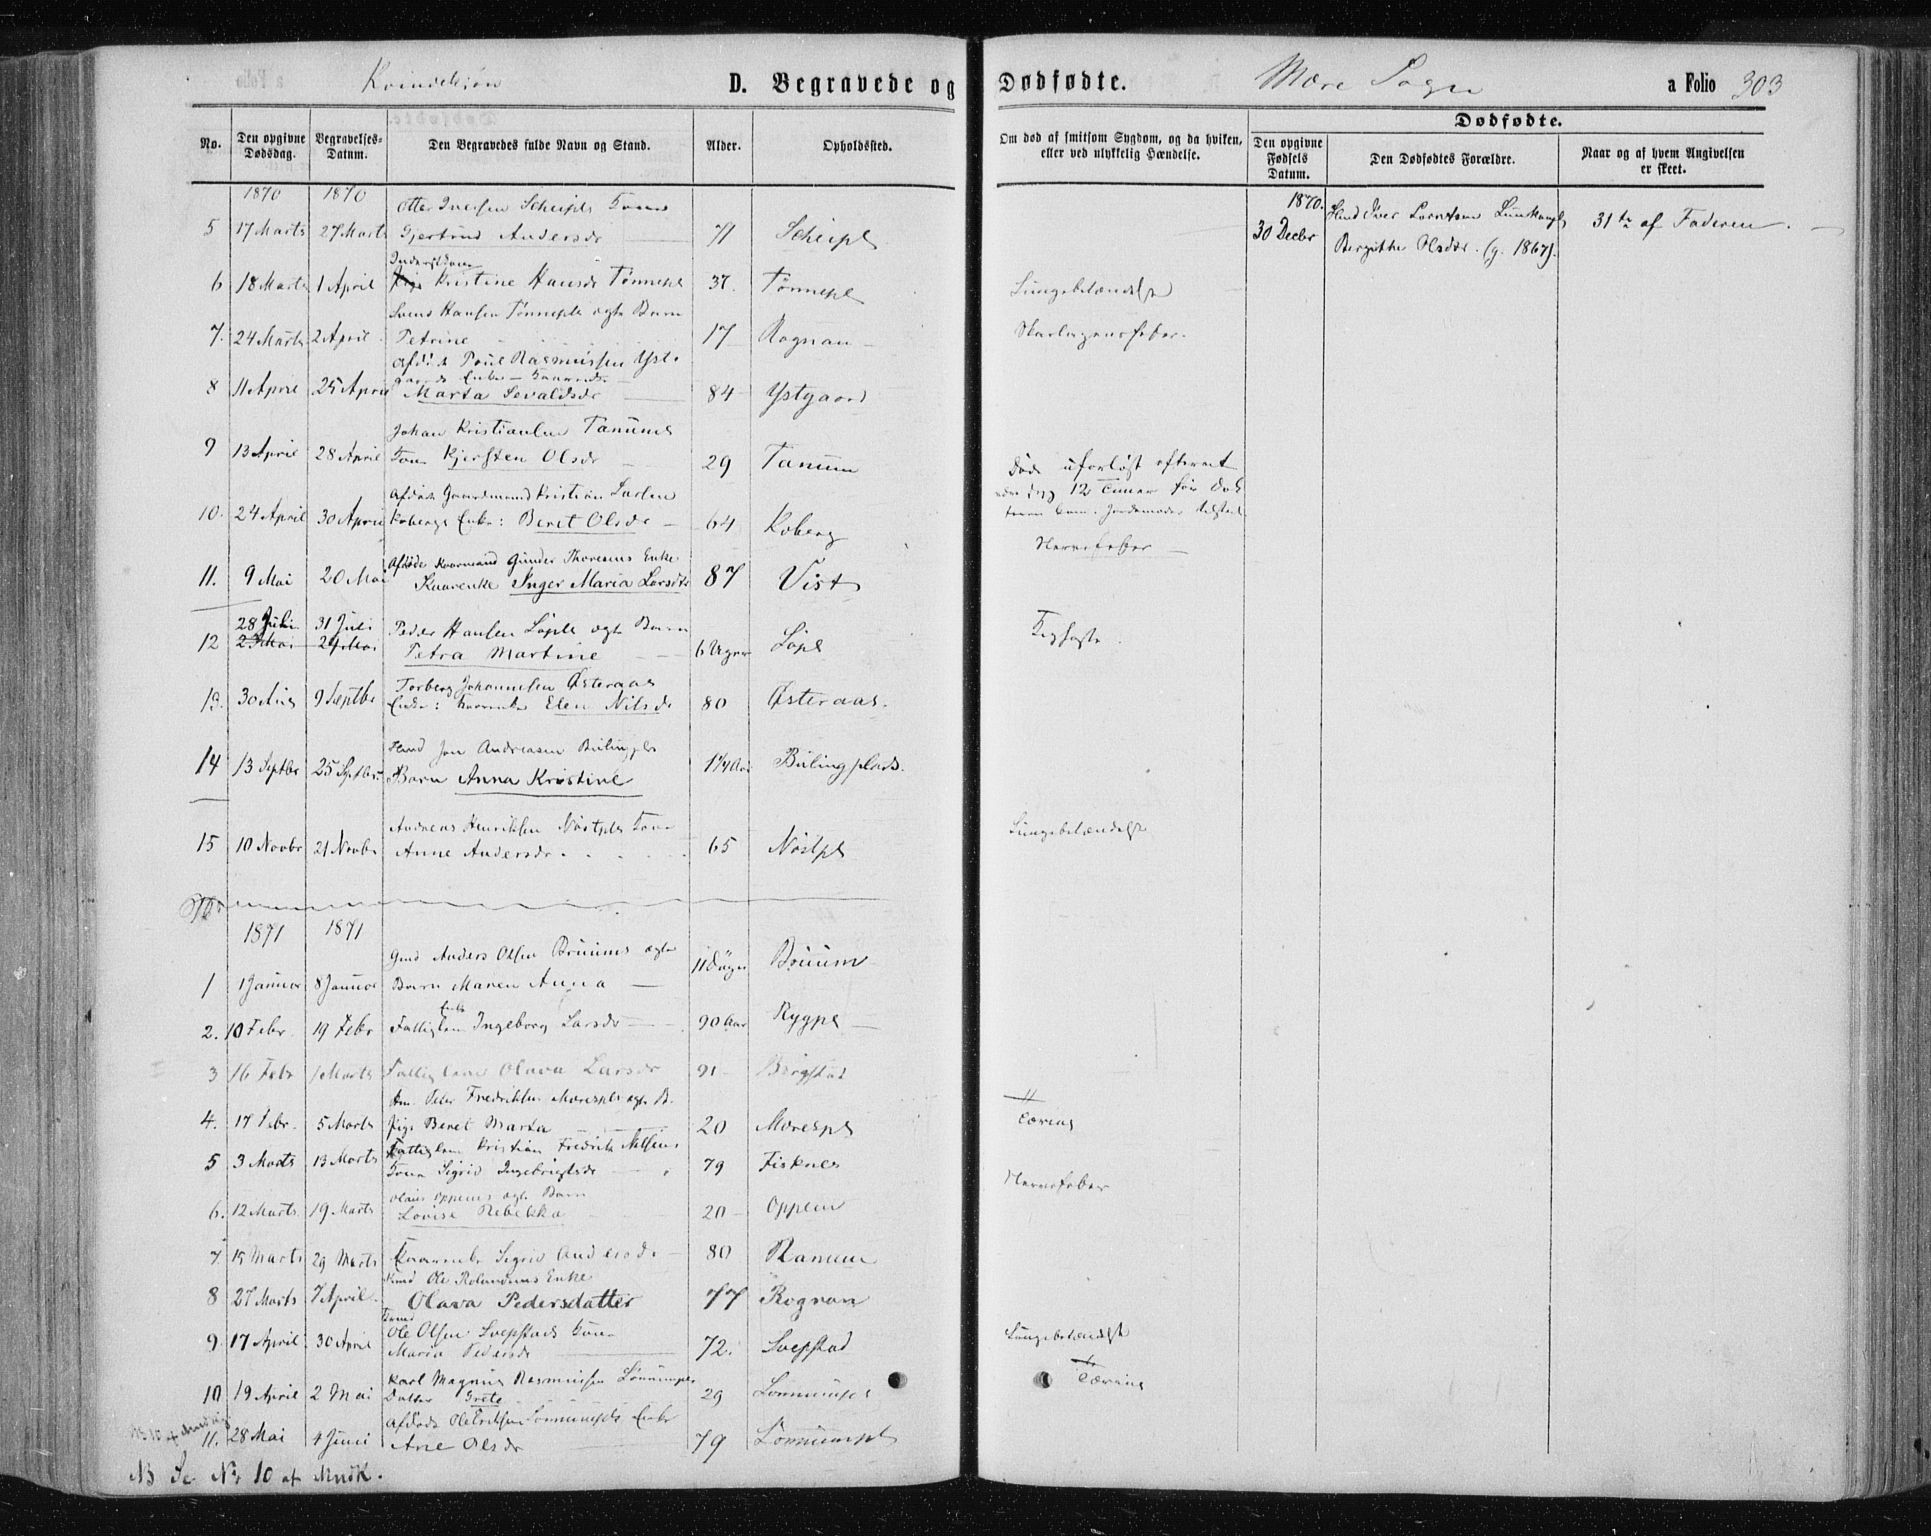 Kvindekjøn
D. Begravede og
Dødfødte.
Mære Sogn
a Folio 303
No.
Den opgivne Dødsdag.
Begravelses-Datum.
Den Begravedes fulde Navn og Stand.
Alder.
Opholdssted.
Om død af smitsom Sygdom, og da hvilken, eller ved ulykkelig Hændelse.
Dødfødte.
Den opgivne Fødsels Datum.
Den Dødfødtes Forældre.
Naar og af hvem Angivelsen er skeet.
1870 1870
Otter Iversen Scheipls Kone
5 17 Marts 27 Marts Gjertrud Andersdr 71 Scheipl
1870.
30 Decbr
Bergitte Olsdtr. (g. 1867).
31te af Faderen.
6 18 Marts 1 April Pige Kristine Hansdr Tønnepl 37. Tønnepl Lungebetændelse
Svend Hansen Tønnepls ægte Barn
7. 24 Marts 2 April Petrine 17 Rognan Skarlagensfeber.
Afdøde Poul Rasmussen Yst-
gaards Enke
8 11 April 25 April Marta Sevaldsdr 84 Ystgaard
Johan Kristiansen Tanums
9 13 April 28 April Kone Kjersten Olsdr 29 Tanum
Døde uforløst efterat
12 Timer før Dok
Jordemoder tilstede
Afdøde Gaardmand Kristian
10. 24 April 30 April Kobergs Enke: Beret Olsdr 64 Koberg
Nervefeber
Afdøde Kaarmand Gunder Thoresens Enke
11. 9 Mai 20 Mai Kaarenke Inger Maria Larsdtr 87 Vist
28 Juli 31 Juli Peder Hansen Løpls ægte Barn
12 23 Mai 24 Mai Petra Martine 6 Uger Løpl
Kighoste
Torberg Johannesen Østeraas
13. 30 Aug 9 Septbr Enke: Kaarenke Elen Nilsdr 80 Østeraas.
Hmd Jon Andreasen Bulingpls
14 13 Septbr 25 Septbr Barn Anna Kristine 1 1/4 Aar Bulingplads.
Andreas Henriksen Nøstpls Kone
15 10 Novbr 21 Novbr Anne Andersdr 65 Nøstpl
Lungebetændelse
1871 1871
Gmd Anders Olsen Bruums ægte
1 1 Januar 8 Januar Barn Maren Anna 11 Dage Bruum
Enke
2. 10 Febr. 19 Febr Fattiglem Ingeborg Larsdr 90 Aar Rygpl
3 16 Febr 1 Marts Fattiglem Olava Larsdr 91 Bergstad
Peter Fredriksen Mærespls ægte B.
4. 17 Febr. 5 Marts Pige Beret Marta 20 Mærespl
Tæring
Fattiglem Kristian Fredrik Nilsens
5 3 Marts 13 Marts Kone Sigrid Ingebrigtsdr 79 Fisknes
Olaus Oppems ægte Barn
6. 12 Marts 19 Marts Lovise Rebekka 20 Oppem
Nervefeber
7 15 Marts 29 Marts Kaarenke Sigrid Andersdr 80 Ranum
Hmd Ole Rolandsens Enke
8 27 Marts 7 April Olava Pedersdatter 77 Rognan
Ole Olsen Svepstads Kone
9. 17 April 30 April Maria Pedersdr 72. Svepstad
Lungebetændelse
Karl Magnus Rasmussen Lønnumpls
10 19 April 2 Mai Datter Grete 29 Lønnumpl
Tæring
Afdøde Ole Eriksen Lønnumpls Enke
11. 28 Mai 4 Juni Ane Olsdr 79 Lønnumpl
NB Se No 10 af Mndk.